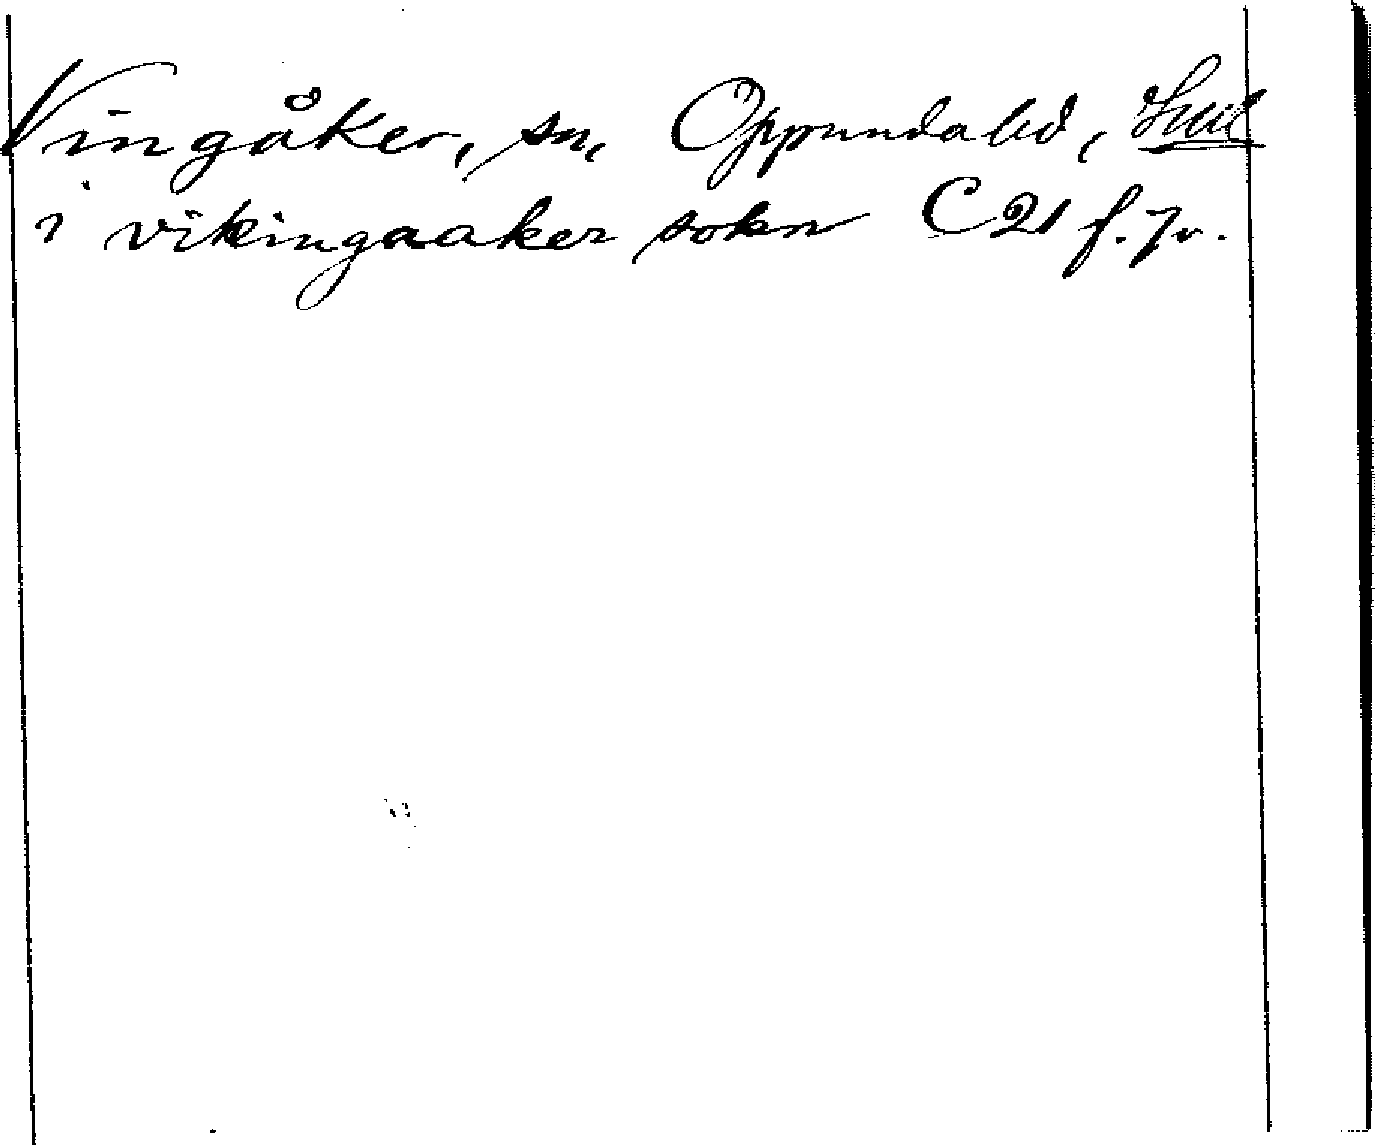 Vingåker, sn, Oppunda hd, Sml
i vikingaaker sokn C 21 f. 7v.